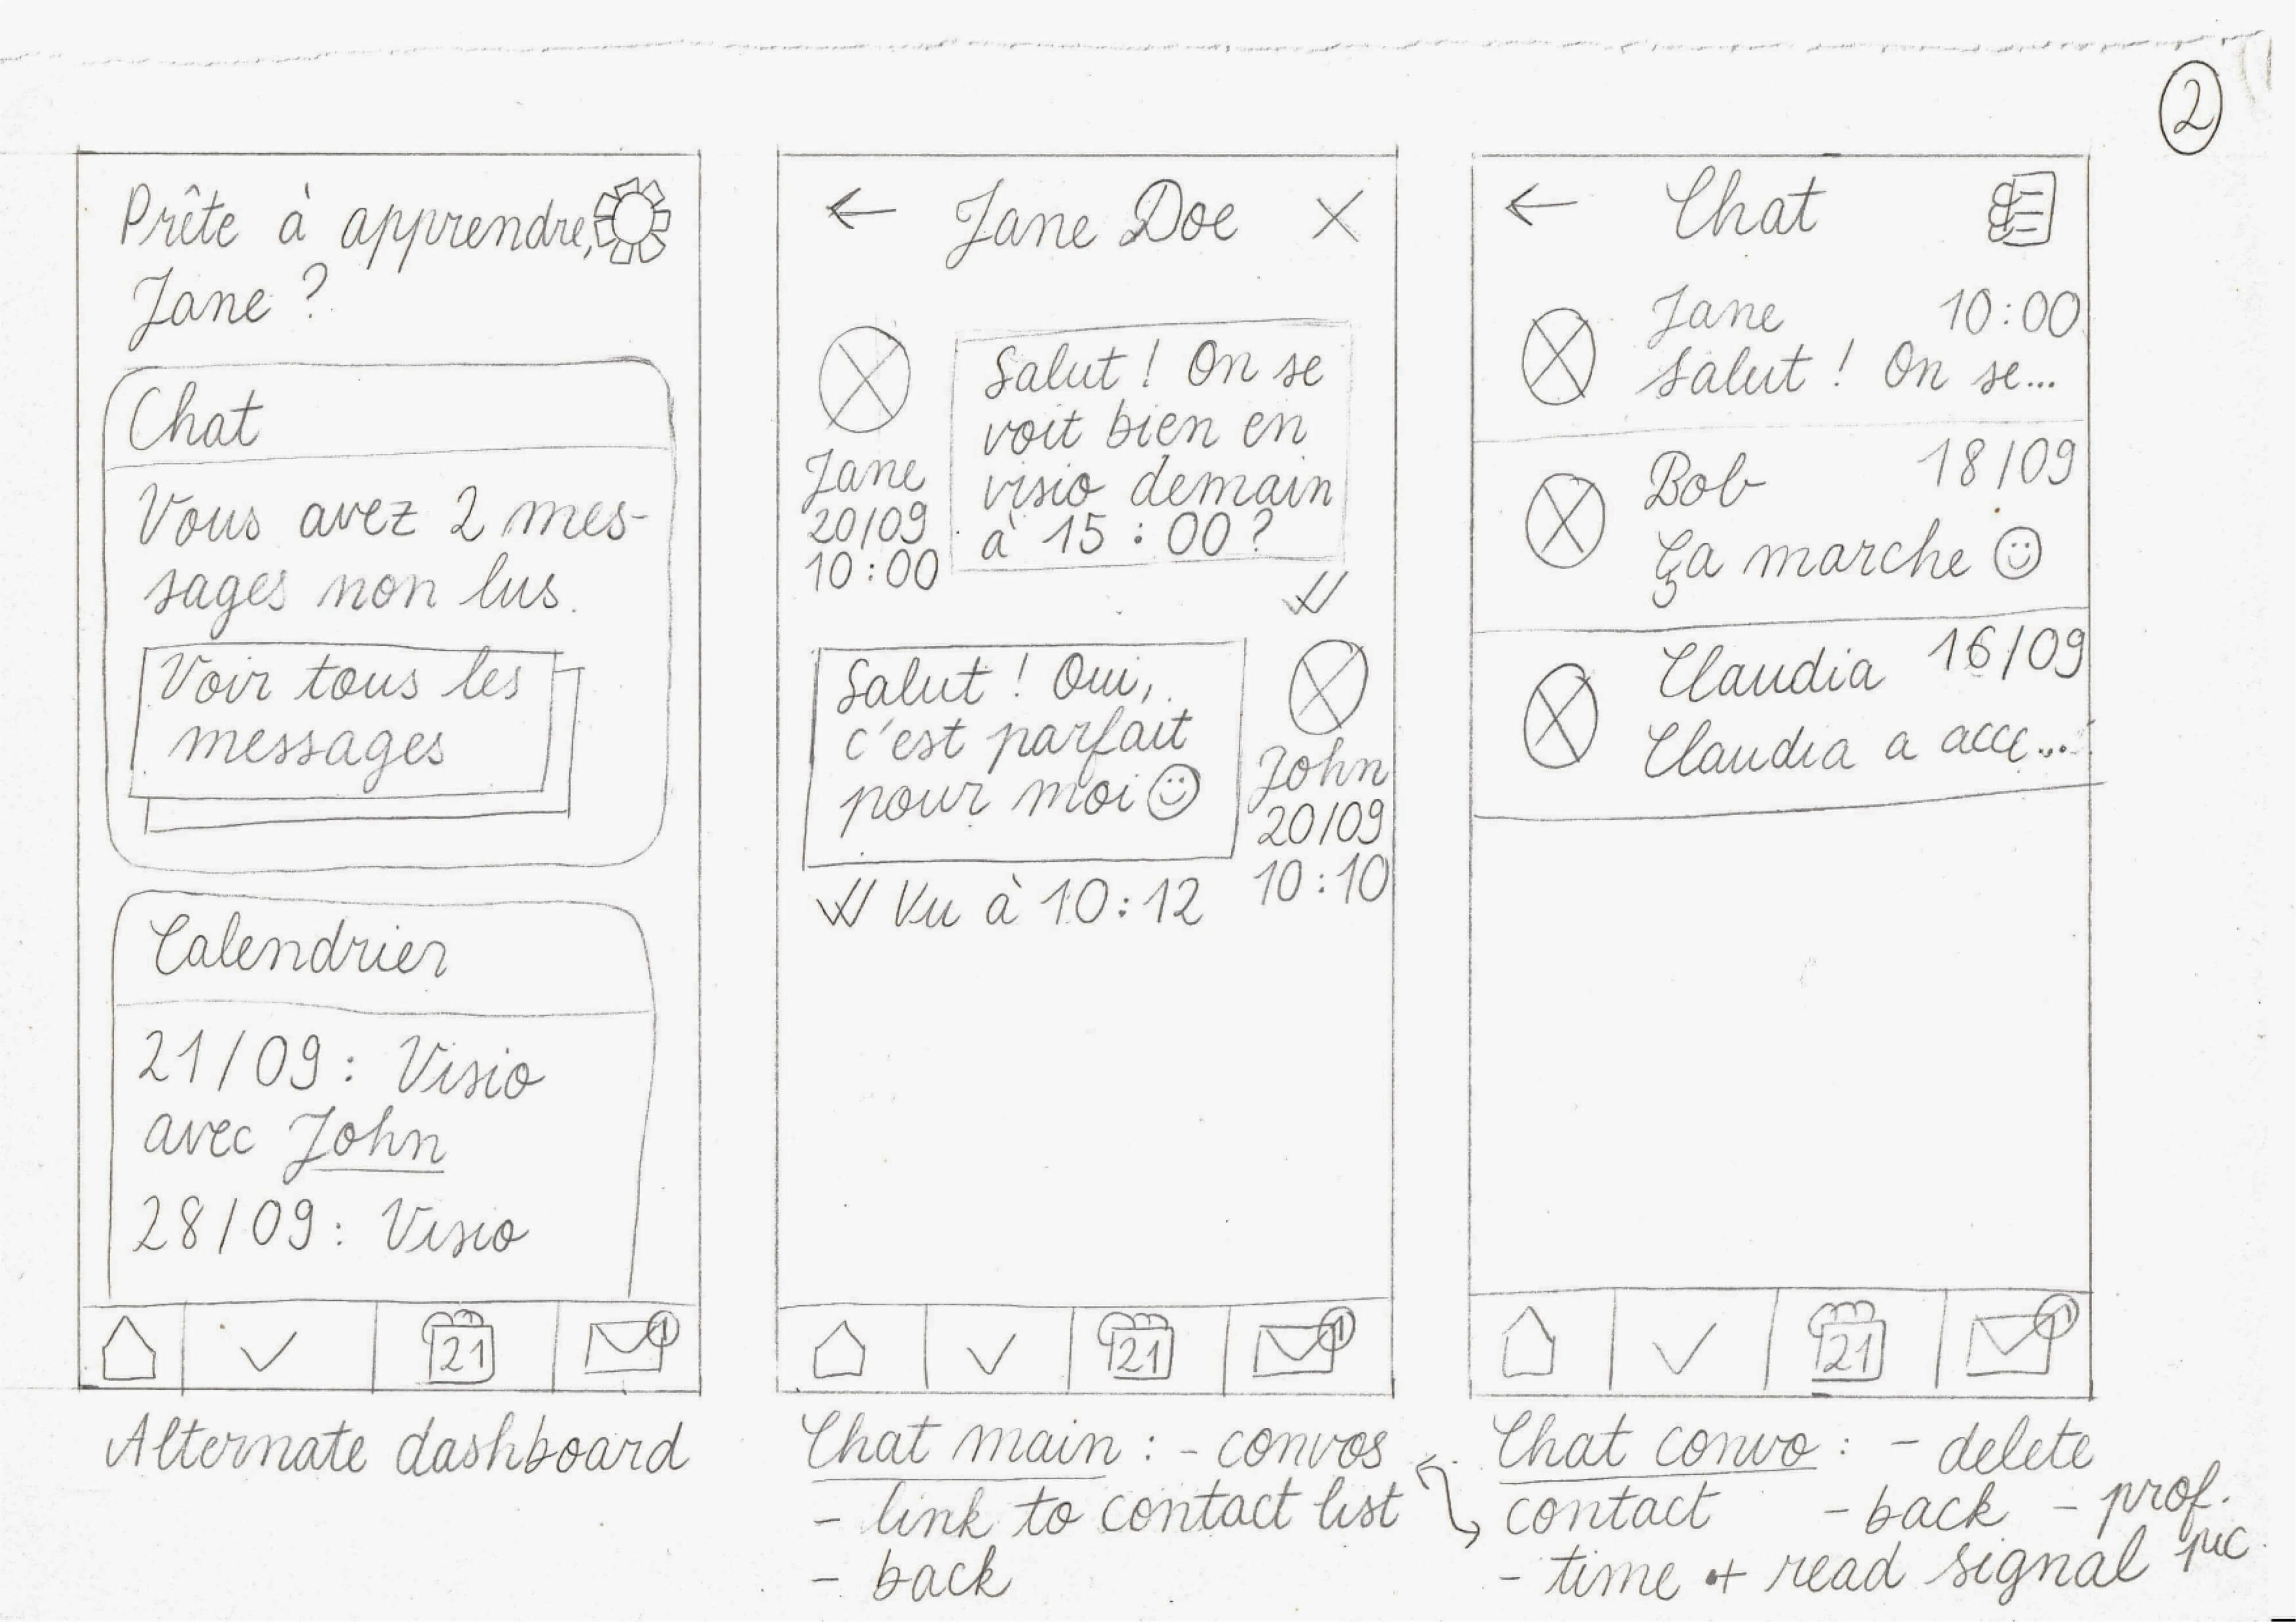 2
Prête à apprendre,
Jane ?
Chat
Vous avez 2 mes-
sages non lus.
Voir tous les
messages
Calendrier
21/09 : Visio
avec John
28/09 : Visio
21
1
Alternate dashboard
← Jane Doe X
Salut ! On se
voit bien en
visio demain
à 15 : 00 ?
Jane
20/09
10:00
Salut ! Oui,
c'est parfait
pour moi ☺
John
20/09
10:10
Vu à 10:12
21
1
Chat main : - convos
- link to contact list
- back
← Chat
Jane 10:00
Salut ! On se...
Bob 18/09
Ça marche ☺
Claudia 16/09
Claudia a acce...
21
1
Chat convo : - delete
contact - back - prof.
pic.
- time + read signal